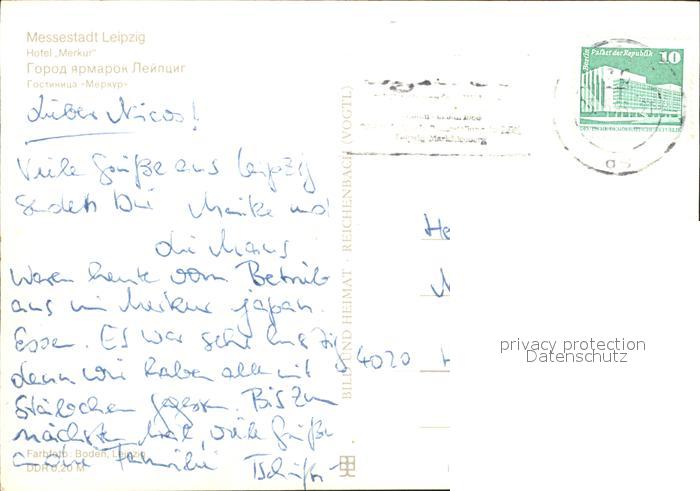 Messestadt Leipzig
Hotel „Merkur"
Город ярмарок Лейпциг
Гостиница «Меркур»
Lieber Nicos!
Viele Grüße aus Leipzig
senden Dir Maike und
die Maus
Waren heute vom Betrieb
aus im Merkur japan.
Essen. Es war sehr lustig
denn wir haben alle mit
Stäbchen gegessen. Bis zum
nächsten Mal, viele Grüße
an die Familie Tschüß
Farbfoto: Boden, Leipzig
DDR 0,20 M
BILD UND HEIMAT · REICHENBACH (VOGTL)
Berlin Palast der Republik
10
DEUTSCHE DEMOKRATISCHE REPUBLIK
He
4020
privacy protection
Datenschutz